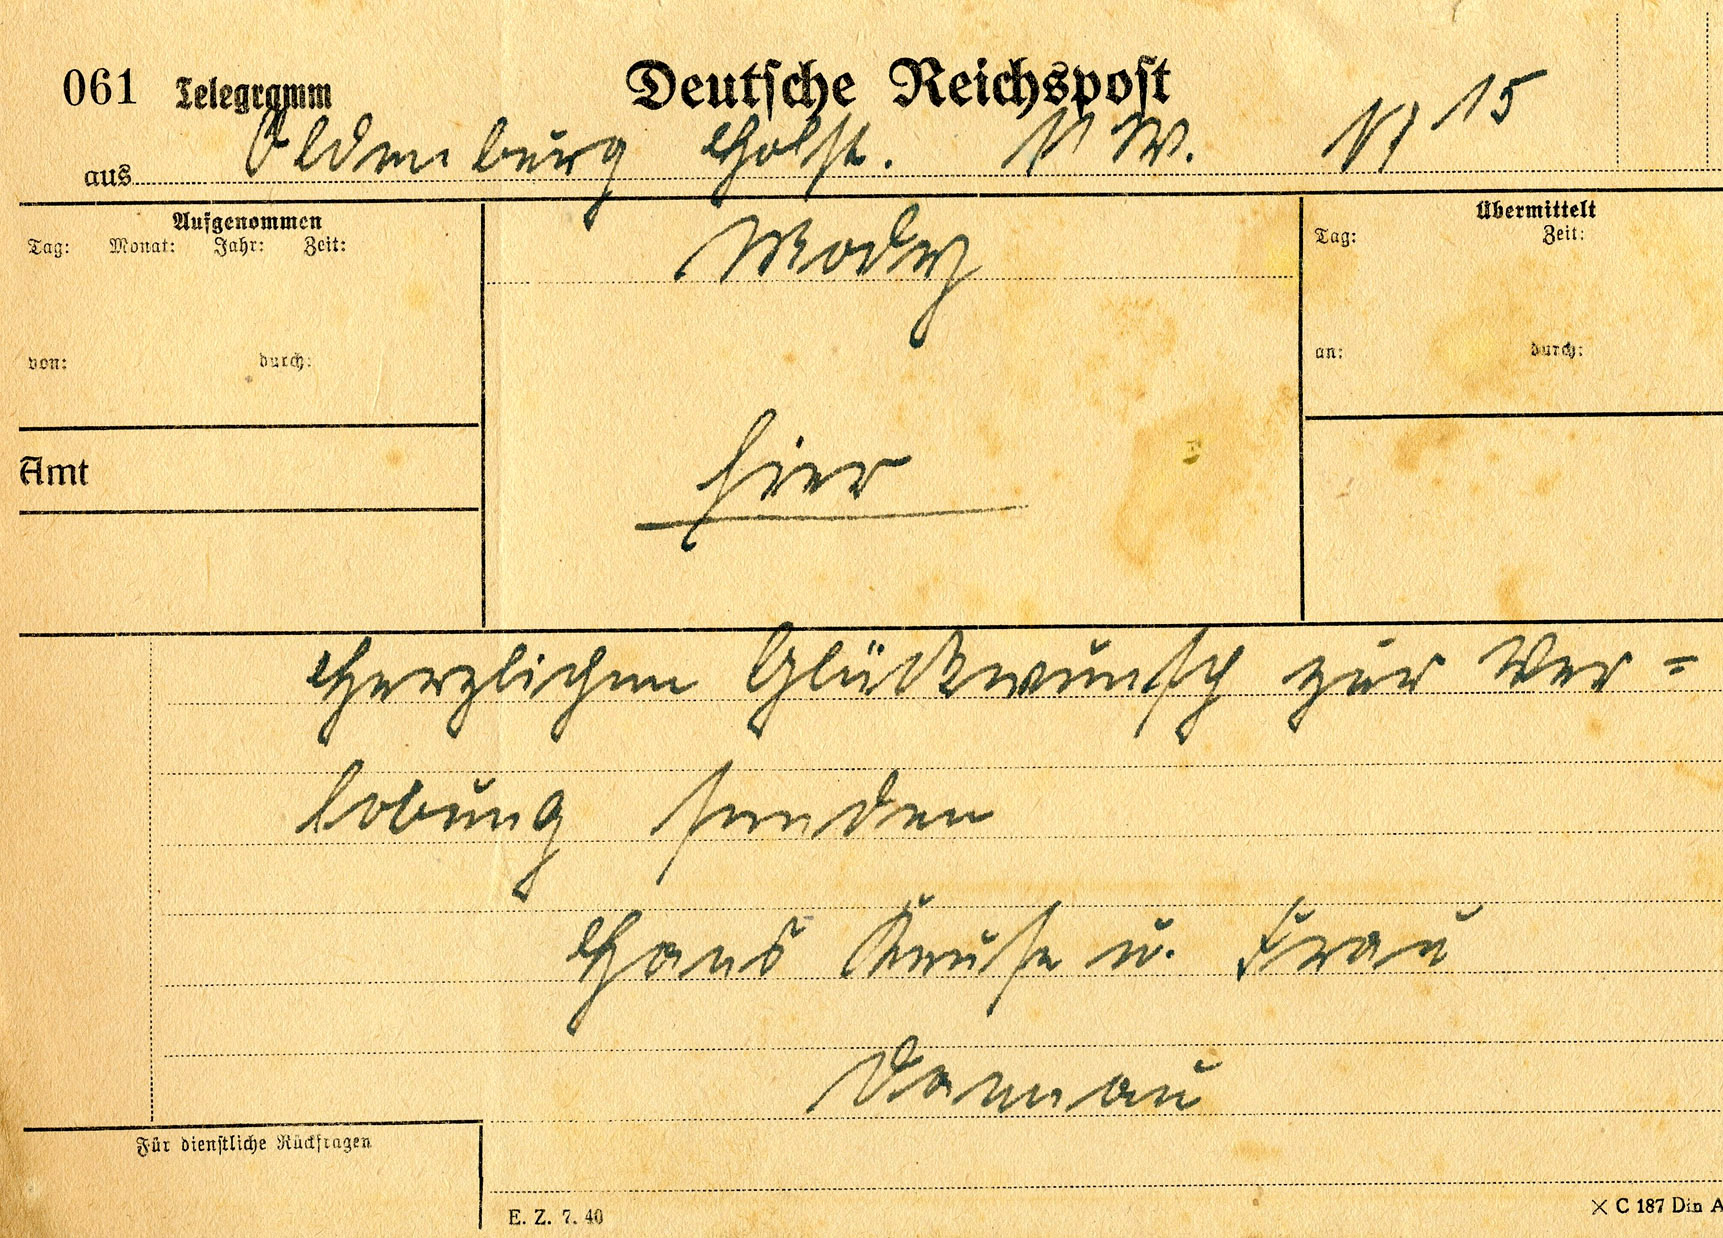 061 Telegramm Deutsche Reichspost
aus Oldenburg Holst. 11 W. 15
Aufgenommen
Tag: Monat: Jahr: Zeit:
von: durch:
Amt
hier
Übermittelt
Tag: Zeit:
an: durch:
Herzlichen Glückwunsch zur Ver=
lobung senden
Hans Kruse u. Frau
Dannau
Für dienstliche Rückfragen
E. Z. 7. 40
× C 187 Din A